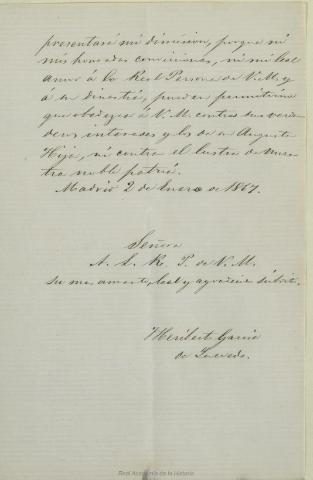 presentaré mi dimision, porque ni
mis honradas convicciones, ni mi leal
amor á la Real Persona de V. M. y
á su dinastía, pueden permitirme
que obedezca á V. M. contra sus verda-
deros intereses y los de su Augusto
Hijo, ni contra el lustre de nues-
tra noble patria.
Madrid 2 de Enero de 1867.
Señora
A. L. R. P. de V. M.
su mas amante, leal y agradecido súbdito.
Heriberto Garcia
de Quevedo.
Real Academia de la Historia